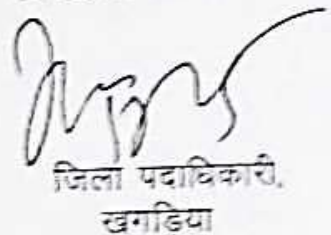 जिला पदाधिकारी,
खगडिया